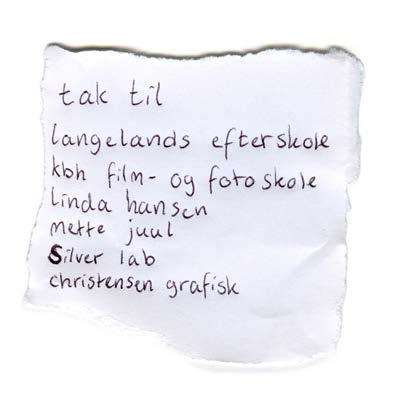 tak til
langelands efterskole
kbh film- og fotoskole
linda hansen
mette juul
Silver lab
christensen grafisk